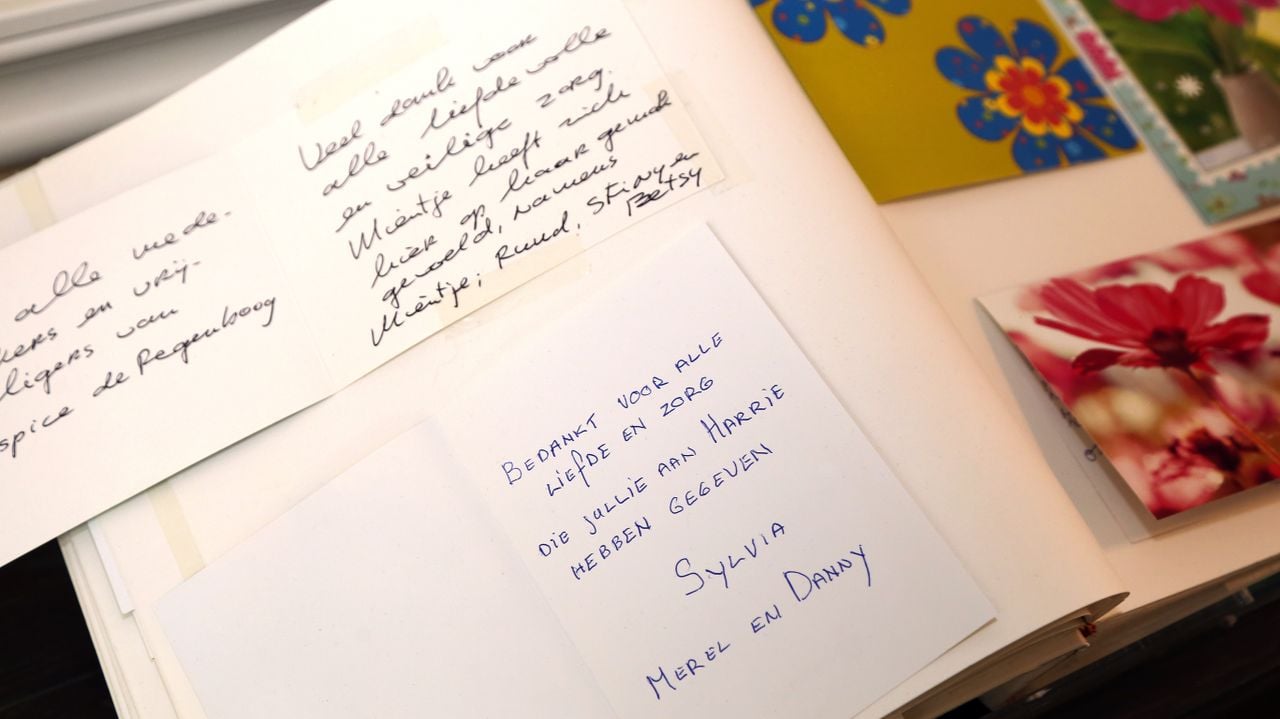 alle mede-
kers en vrij-
ligers van
spice de Regenboog
Veel dank voor
alle liefdevolle
en veilige zorg.
Miëntje heeft zich
hier op haar gemak
gevoeld, namens
Miëntje; Ruud, Stiny en
Betsy
BEDANKT VOOR ALLE
LIEFDE EN ZORG
DIE JULLIE AAN HARRIE
HEBBEN GEGEVEN
SYLVIA
MEREL EN DANNY